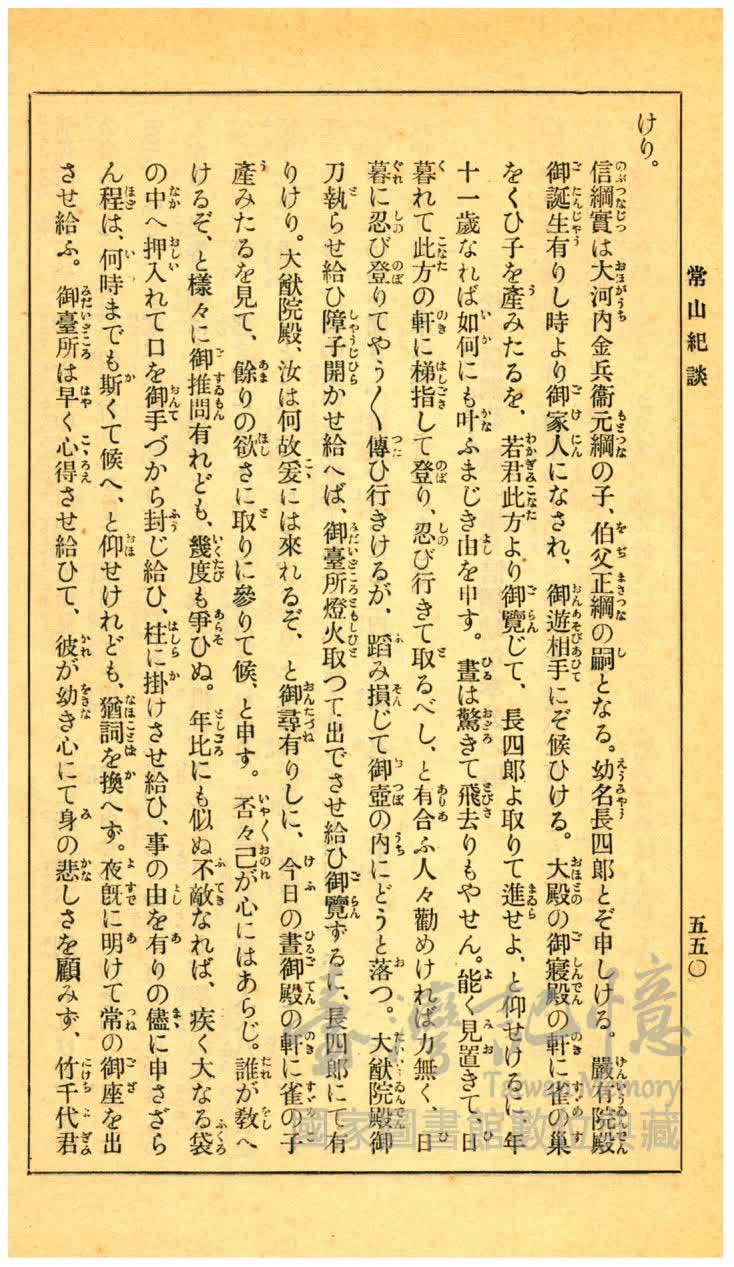 常山紀談
五五〇
けり。
信綱實は大河內金兵衞元綱の子、伯父正綱の嗣となる。幼名長四郎とぞ申しける。嚴有院殿
御誕生有りし時より御家人になされ、御遊相手にぞ候ひける。大殿の御寢殿の軒に雀の巢
をくひ子を產みたるを、若君此方より御覽じて、長四郎よ取りて進せよ、と仰せけるに、年
十一歲なれば如何にも叶ふまじき由を申す。晝は驚きて飛去りもやせん。能く見置きて、日
暮れて此方の軒に梯指して登り、忍び行きて取るべし、と有合ふ人々勸めければ力無く、日
暮に忍び登りてやう〳〵傳ひ行きけるが、蹈み損じて御壺の內にどうと落つ。大猷院殿御
刀執らせ給ひ障子開かせ給へば、御臺所燈火取つて出でさせ給ひ御覽ずるに、長四郎にて有
りけり。大猷院殿、汝は何故爰には來れるぞ、と御尋有りしに、今日の晝御殿の軒に雀の子
產みたるを見て、餘りの欲さに取りに參りて候、と申す。否々己が心にはあらじ。誰が敎へ
けるぞ、と樣々に御推問有れども、幾度も爭ひぬ。年比にも似ぬ不敵なれば、疾く大なる袋
の中へ押入れて口を御手づから封じ給ひ、柱に掛けさせ給ひ、事の由を有りの儘に申さざら
ん程は、何時までも斯くて候へ、と仰せけれども、猶詞を換へず。夜旣に明けて常の御座を出
させ給ふ。御臺所は早く心得させ給ひて、彼が幼き心にて身の悲しさを顧みず、竹千代君
臺灣記憶
Taiwan Memory
國家圖書館數位典藏